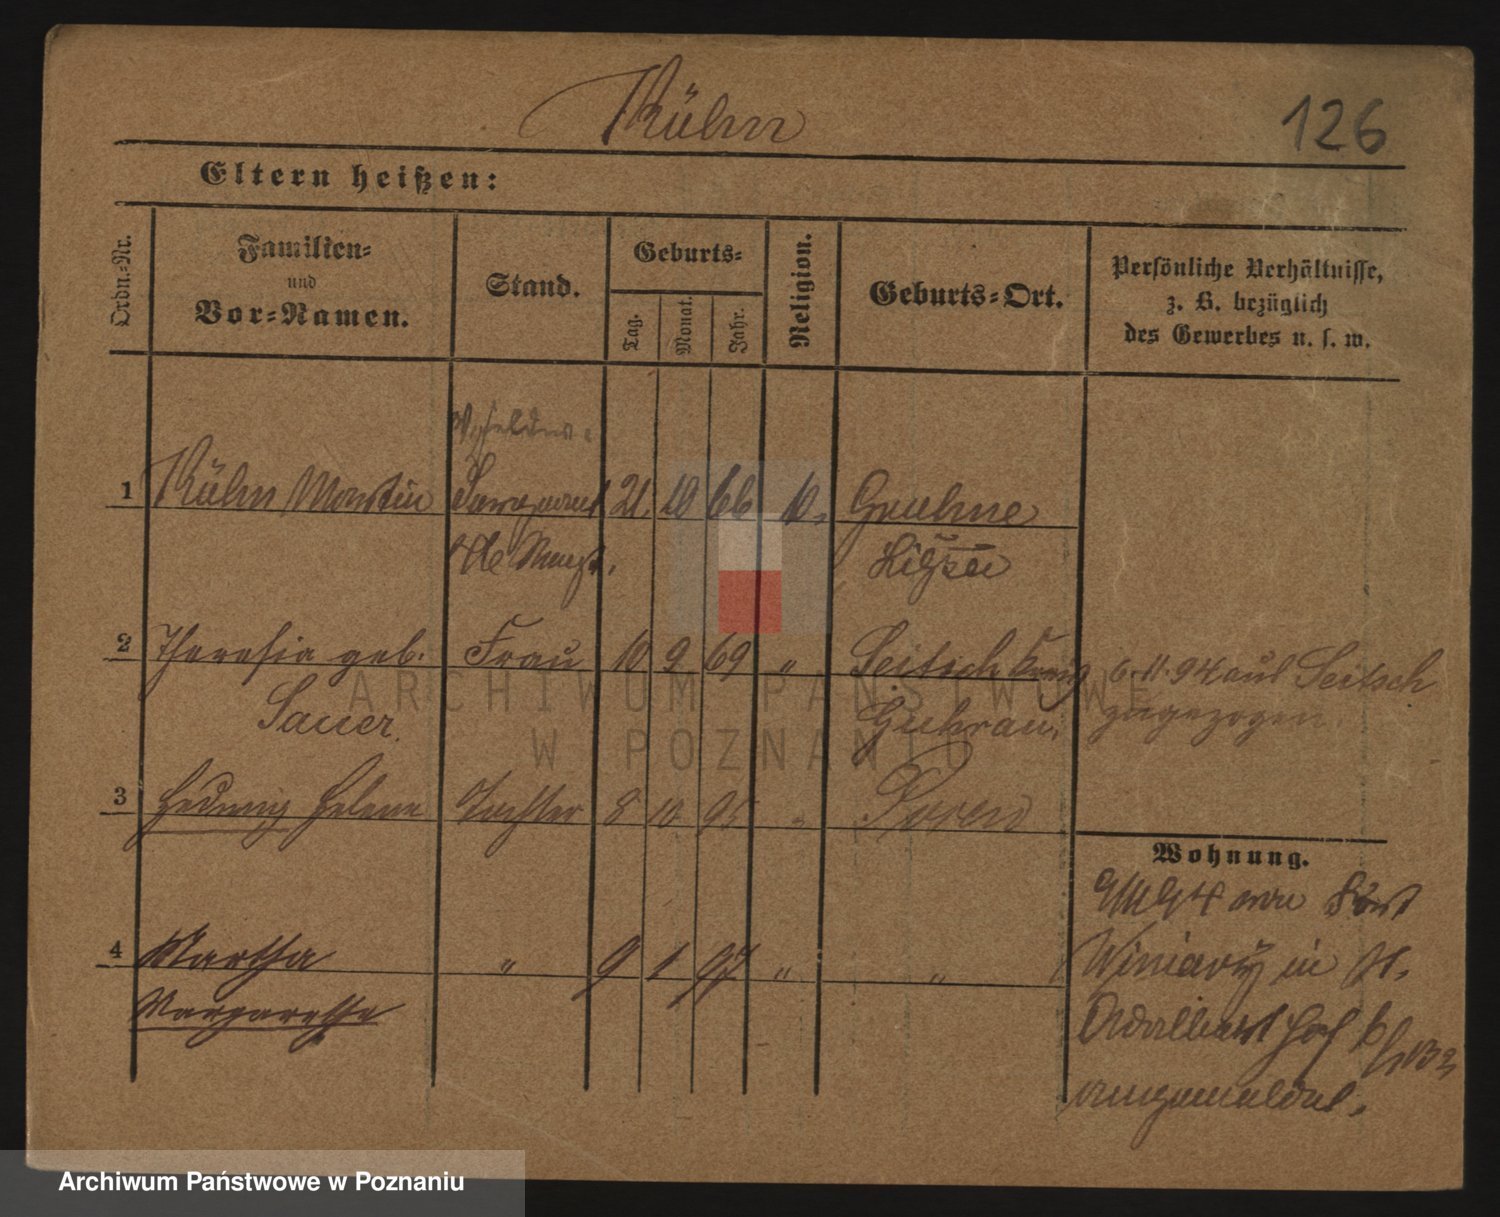 Kühn
126
Eltern heißen:
Ordn.-Nr.
Familien-
und
Vor-Namen.
Stand.
Geburts-
Tag.
Monat.
Jahr.
Religion.
Geburts-Ort.
Persönliche Verhältnisse,
z. B. bezüglich
des Gewerbes u. s. w.
1 Kühn Martin Sergeant 21. 10 66
2 Theresia geb. Frau 10 9 69 " Seitsch Kreis 6.11.94 aus Seitsch
Sauer. Guhrau. zugezogen.
3 Hedwig Helene Tochter 8 10 95 " Posen
Wohnung.
4 Martha " 9 1 97 " " Winiary in St.
Margarethe Adalbert
angemeldet.
ARCHIWUM PAŃSTWOWE
W POZNANIU
Archiwum Państwowe w Poznaniu